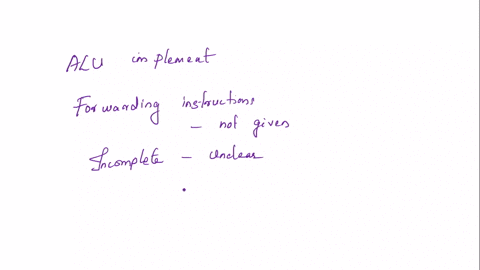 ALU implement
Forwarding instructions
- not given
Incomplete - unclear